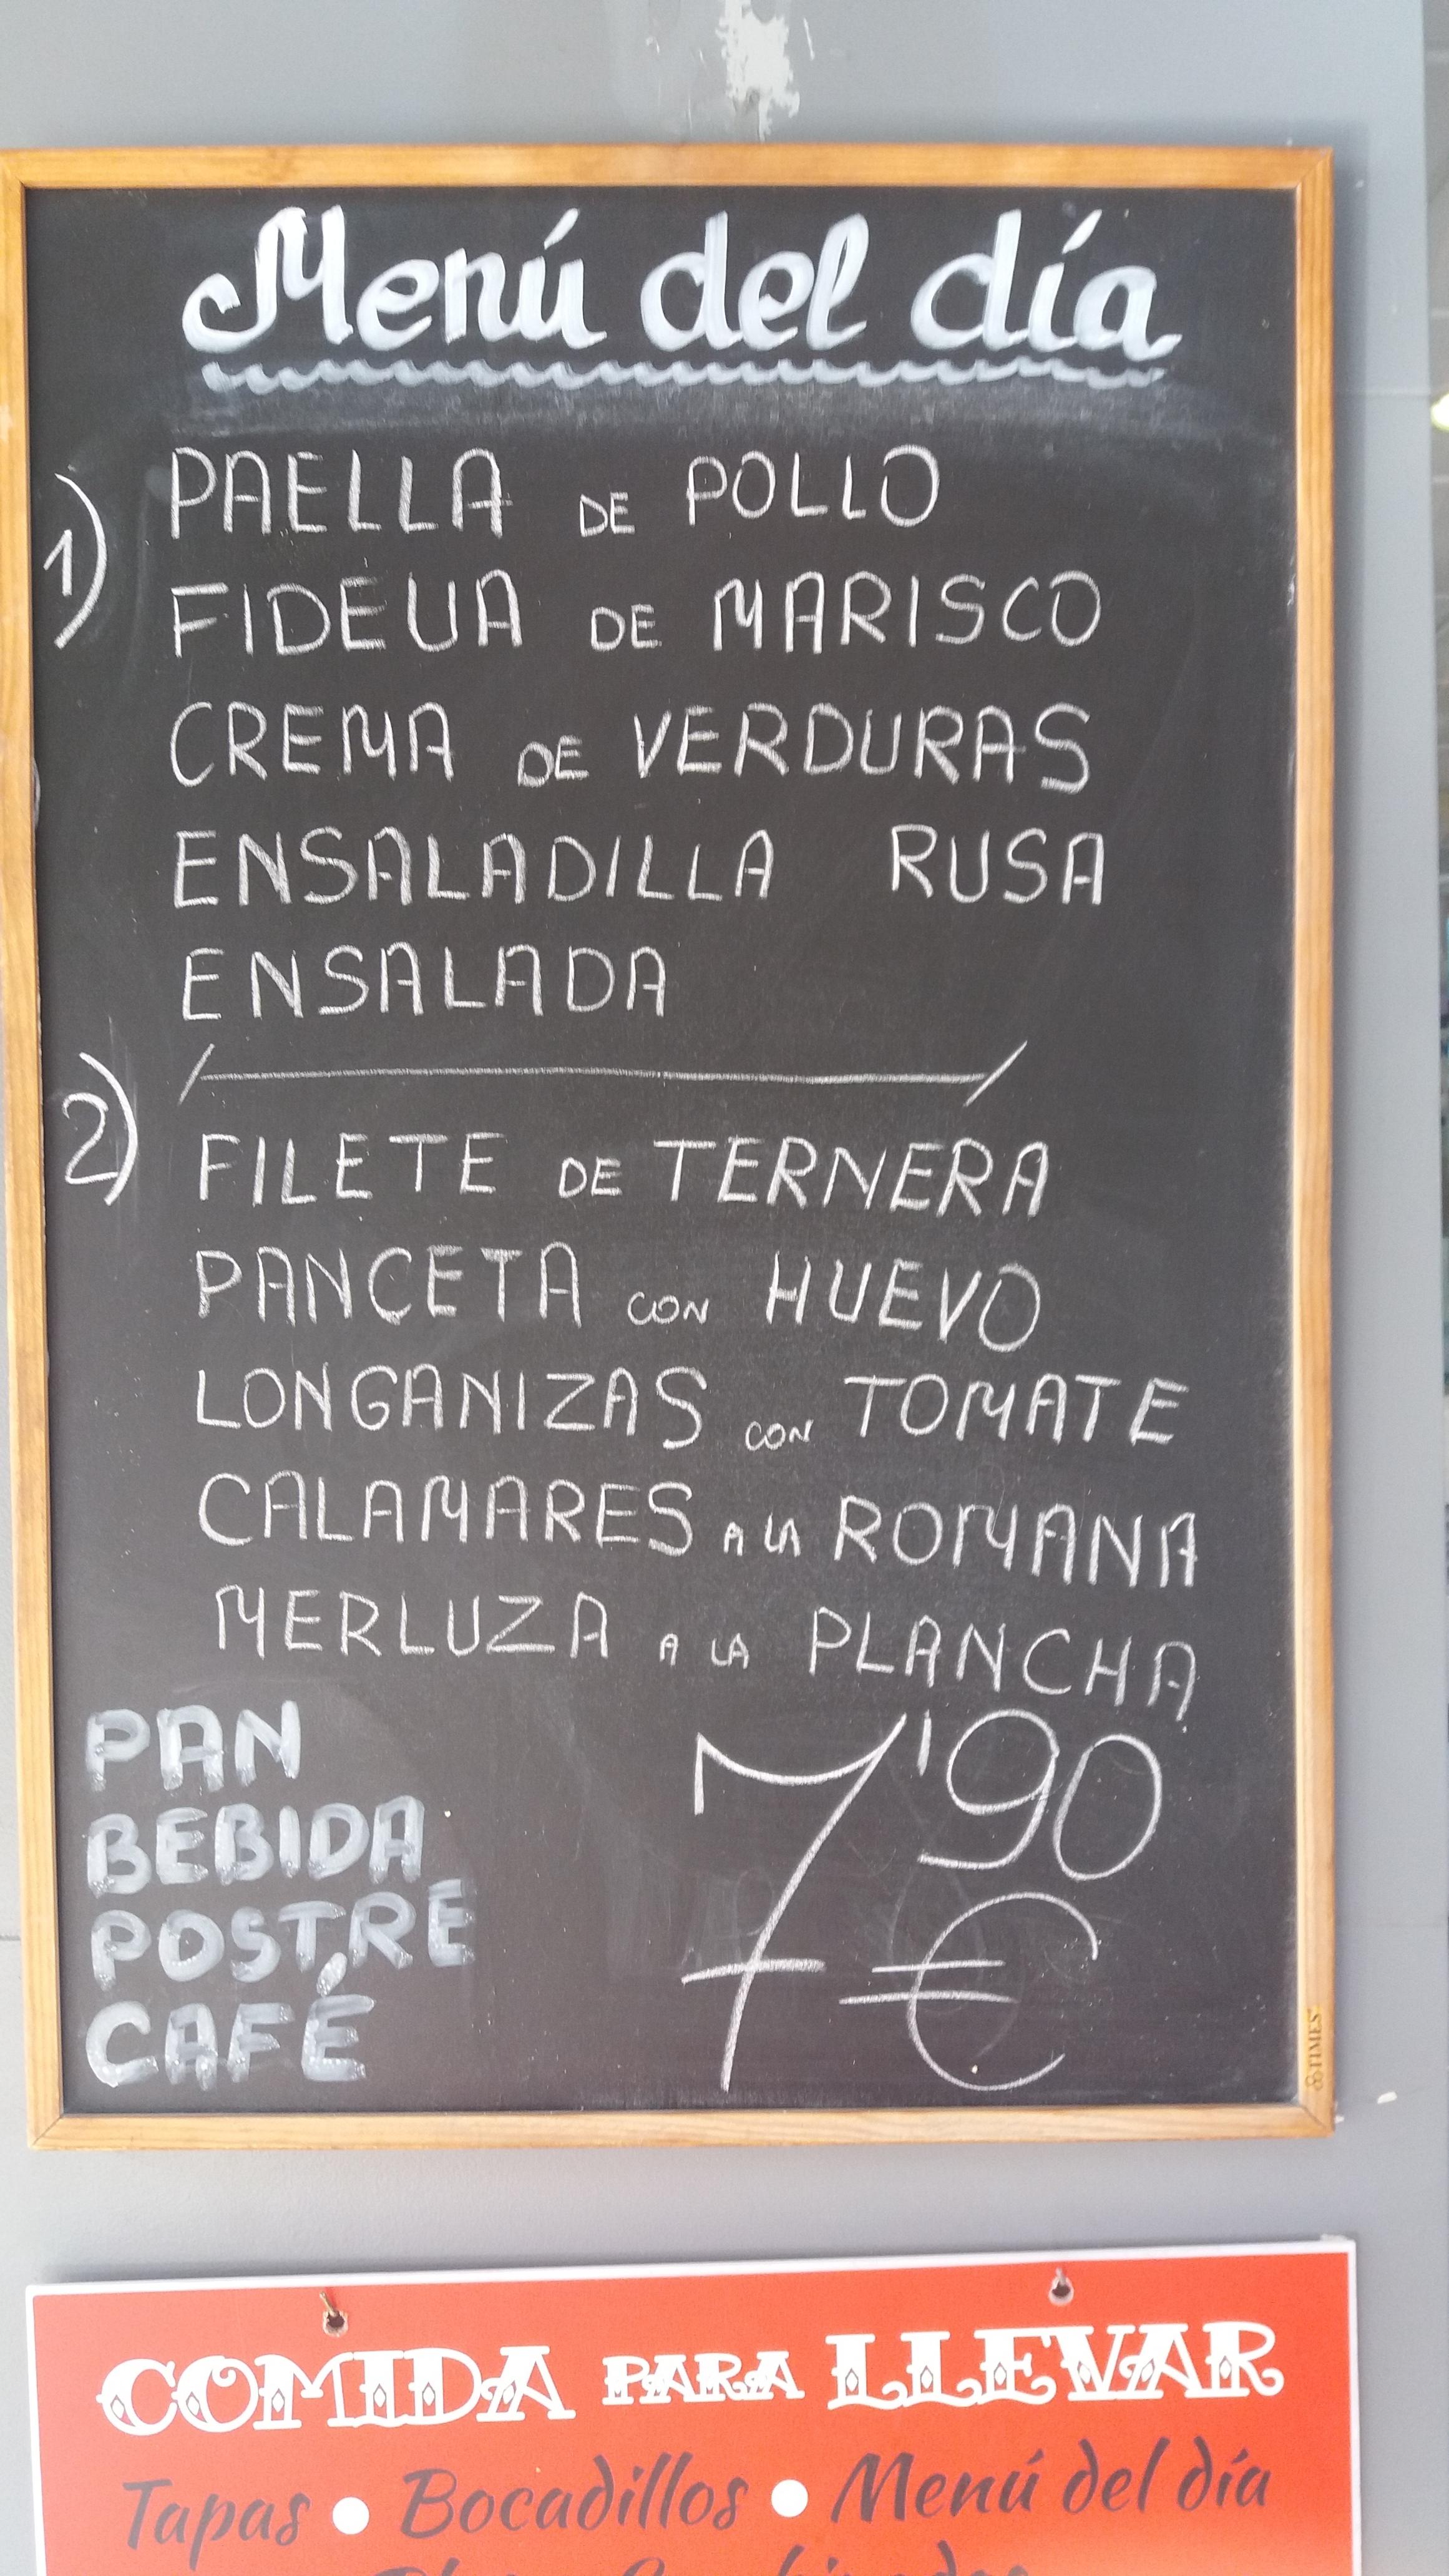 Menú del día
1) PAELLA DE POLLO
FIDEUA DE MARISCO
CREMA DE VERDURAS
ENSALADILLA RUSA
ENSALADA
2) FILETE DE TERNERA
PANCETA CON HUEVO
LONGANIZAS CON TOMATE
CALAMARES A LA ROMANA
MERLUZA A LA PLANCHA
PAN
BEBIDA
POSTRE
CAFÉ
7'90
€
TIMES
COMIDA PARA LLEVAR
Tapas • Bocadillos • Menú del día